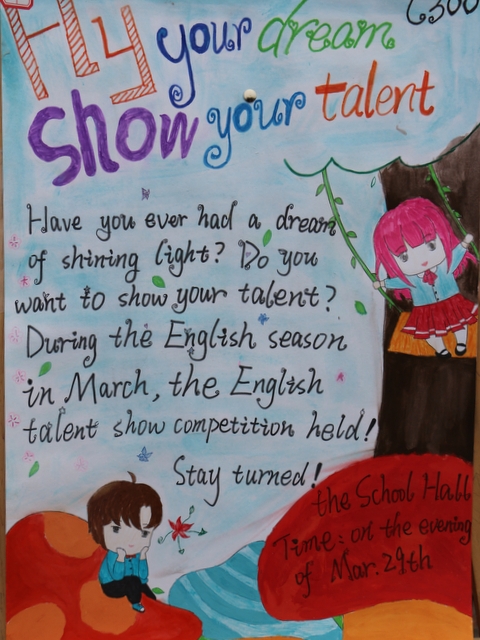 Fly your dream
Show your talent
Have you ever had a dream
of shining light? Do you
want to show your talent?
During the English season
in March, the English
talent show competition held!
Stay turned!
the School Hall
Time: on the evening
of Mar. 29th